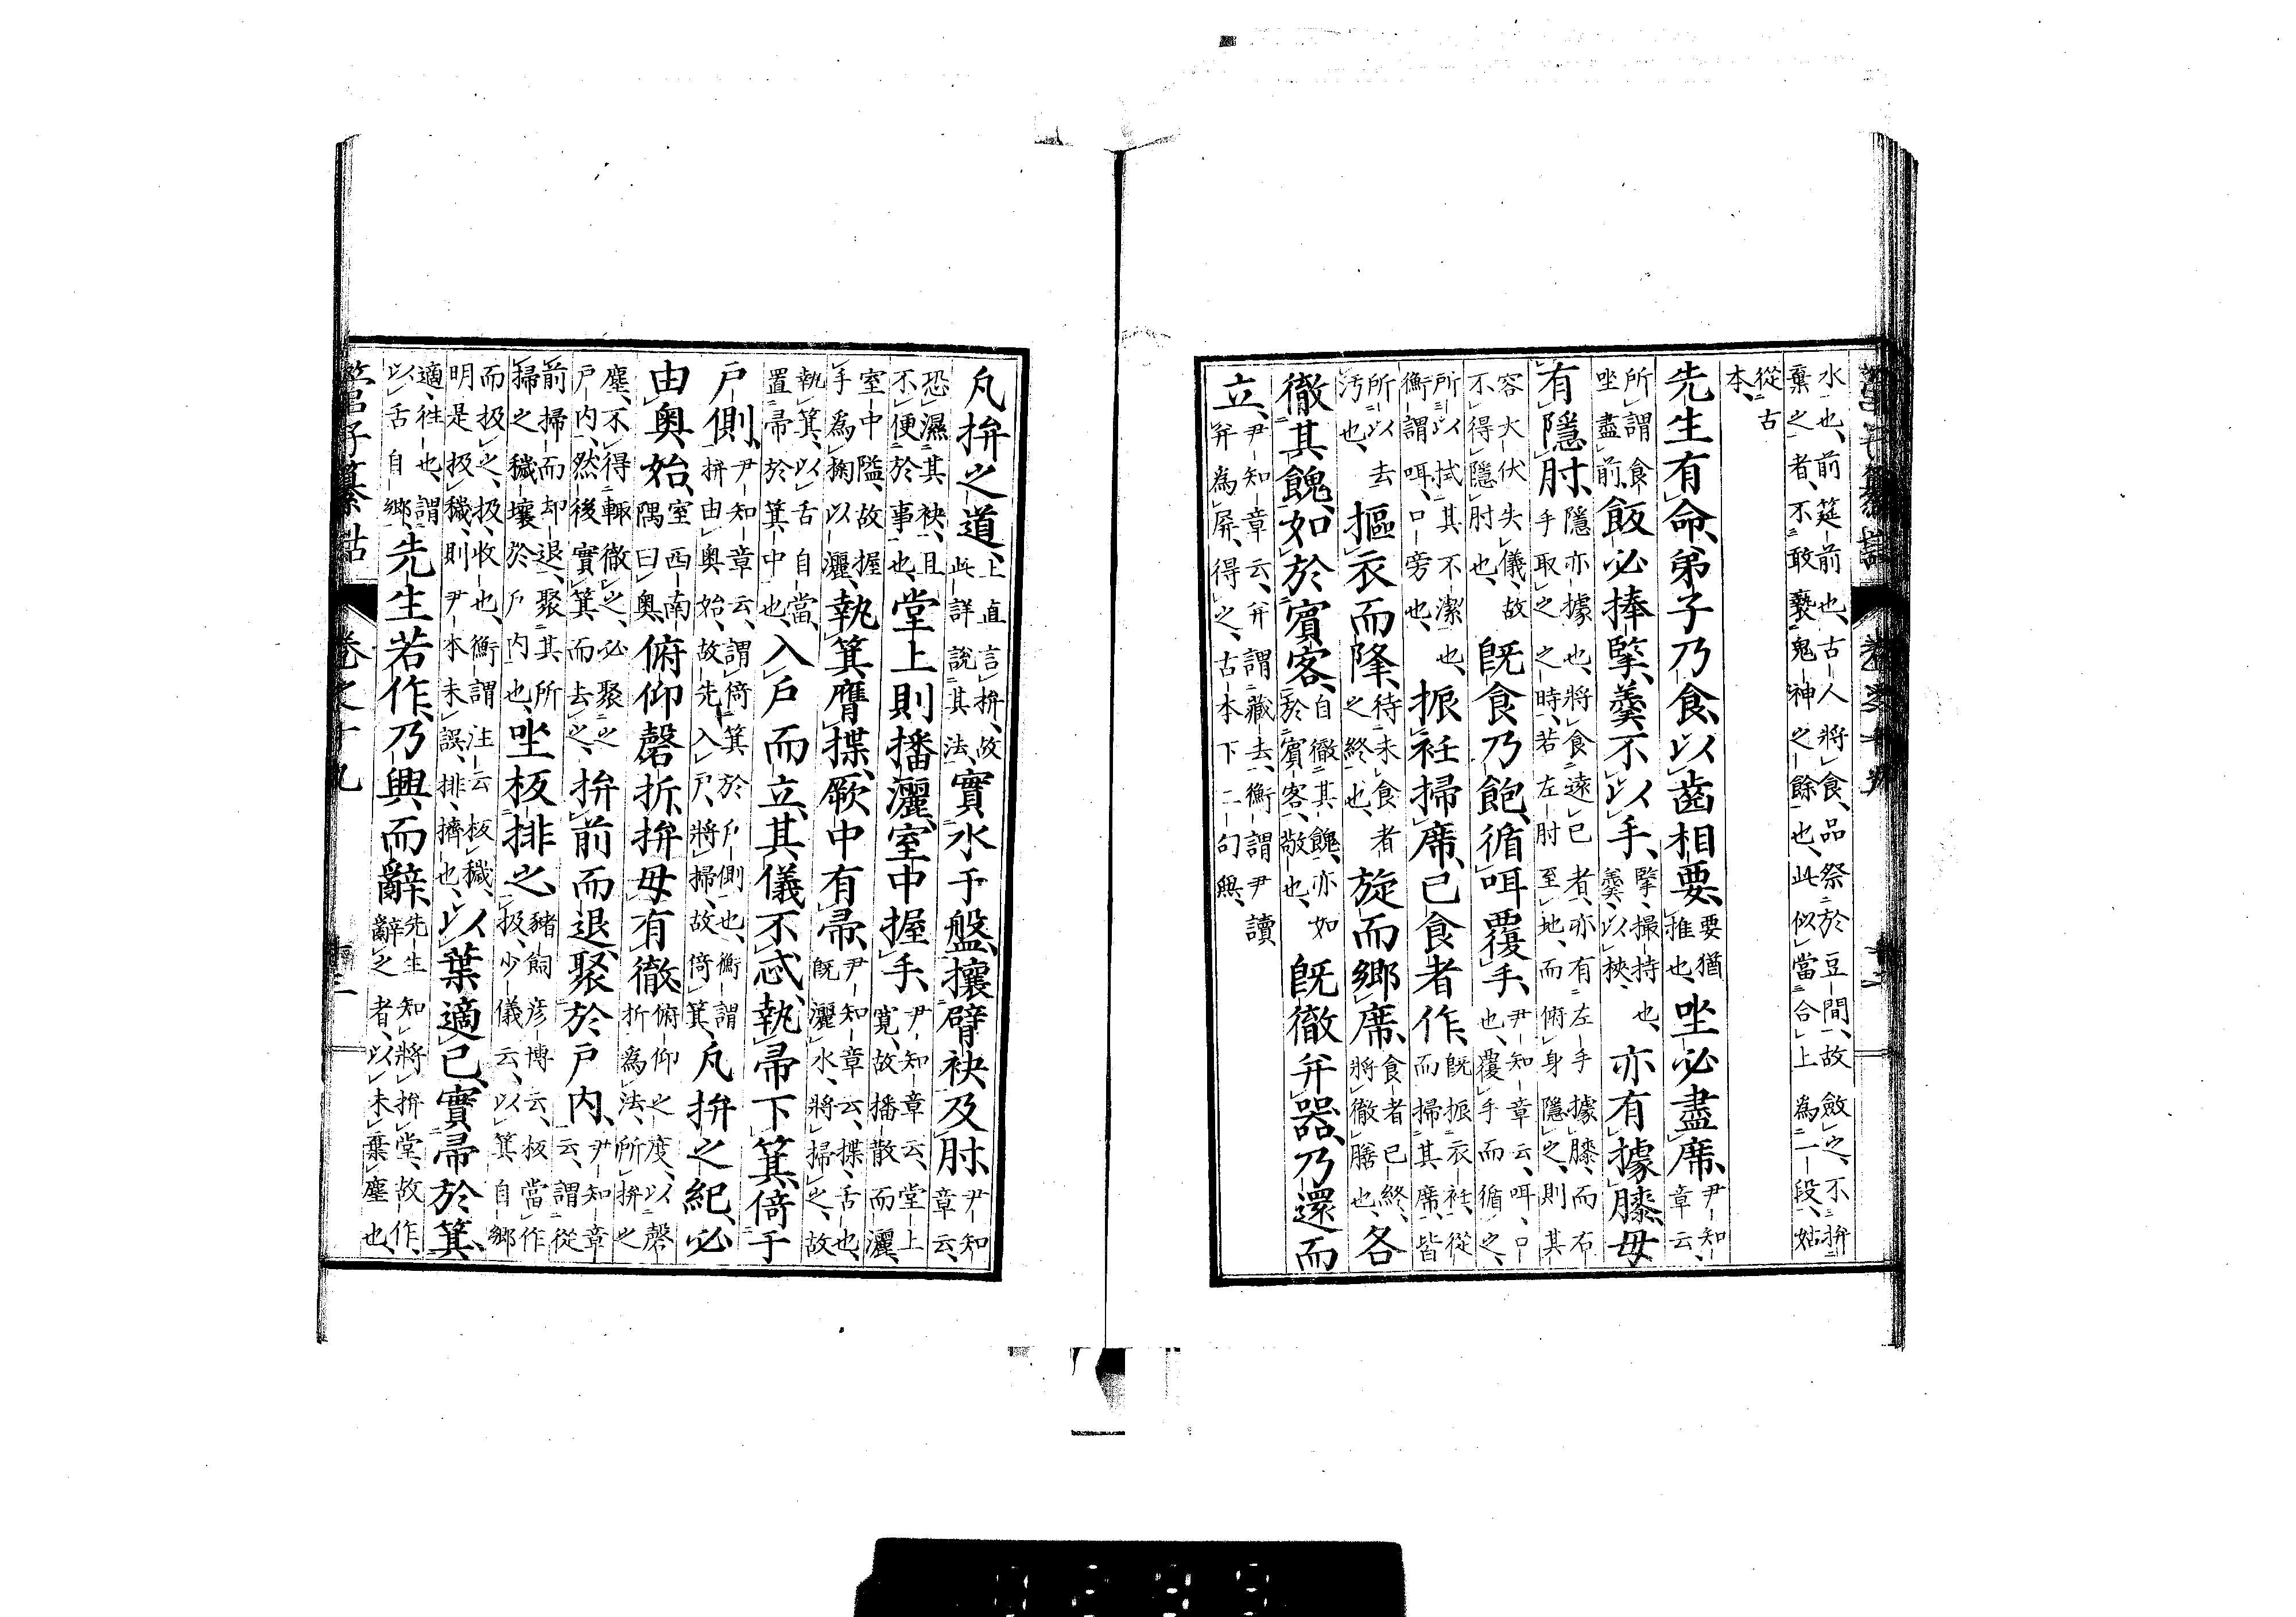 水也、前筵前也、古人將食、品祭於豆間、故斂之、不拚
棄之者、不敢褻鬼神之餘也、此似當合上為一段、姑
從古
本、
先生有命、弟子乃食、以齒相要、要猶推也、坐必盡席、尹知章云、
所謂食坐盡前、飯必捧擥、羹不以手、擥、撮持也、羹以梜、亦有據膝、毋
有隱肘、隱亦據也、將食遠已者、亦有左手據膝、而右手取之之時、若左肘至地、而俯身隱之、則其
容大伏失儀、故不得隱肘也、既食乃飽、循咡覆手、尹知章云、咡、口也、覆手而循之、
所以拭其不潔也、衡謂咡、口旁也、振衽掃席、已食者作、既振衣衽、從而掃其席、皆
所以去汚也、摳衣而降、待未食者之終也、旋而鄉席、食者已終、將徹膳也、各
徹其餽、如於賓客、自徹其餽、亦如於賓客、敬也、既徹并器、乃還而
立、尹知章云、并謂藏去、衡謂尹讀并為屏、得之、古本下二句無、
凡拚之道、上直言拚、故此詳說其法、實水于盤、攘臂袂及肘、尹知章云、
恐濕其袂、且不便於事也、堂上則播灑、室中握手、尹知章云、堂上寬、故播散而灑、
室中隘、故握手為掬以灑、執箕膺揲、厥中有帚、尹知章云、揲、舌也、既灑水、將掃之、故
執箕、以舌自當、置帚於箕中也、入戶而立、其儀不忒、執帚下箕、倚于
戶側、尹知章云、謂倚箕於戶側也、衡謂拚由奧始、故先入戶、將掃、故倚箕、凡拚之紀、必
由奧始、室西南隅曰奧、俯仰磬折、拚毋有徹、俯仰之度、以磬折為法、所拚之
塵、不得輒徹之、必聚之戶內、然後實箕而去之、拚前而退、聚於戶內、尹知章云、謂從
前掃而却退、聚其所掃之穢壤於戶內也、坐板排之、豬飼彥博云、板當作扱、少儀云、以箕自鄉
而扱之、扱、收也、衡謂注云板穢、明是扱穢、則尹本未誤、排、擠也、以葉適已、實帚於箕、
適、往也、謂以舌自鄉、先生若作、乃興而辭、先生知將拚堂、故作、辭之者、以未棄塵也、
管子纂詁 卷之十九